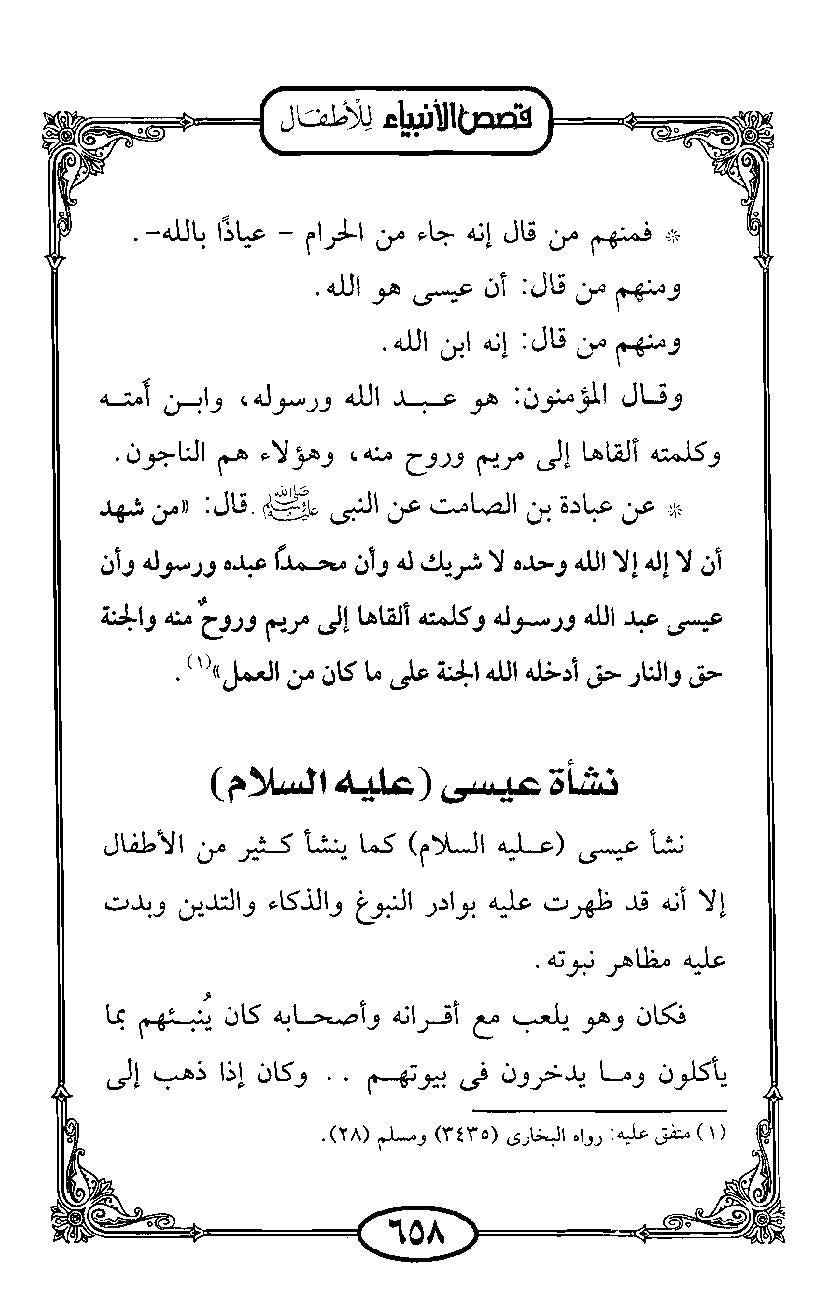 قصص الأنبياء لِلْأطفال
* فمنهم من قال إنه جاء من الحرام - عياذًا بالله-.
ومنهم من قال: أن عيسى هو الله.
ومنهم من قال: إنه ابن الله.
وقال المؤمنون: هو عبد الله ورسوله، وابن أَمته
وكلمته ألقاها إلى مريم وروح منه، وهؤلاء هم الناجون.
* عن عبادة بن الصامت عن النبى ﷺ .قال: «من شهد
أن لا إله إلا الله وحده لا شريك له وأن محمداً عبده ورسوله وأن
عيسى عبد الله ورسوله وكلمته ألقاها إلى مريم وروحٌ منه والجنة
حق والنار حق أدخله الله الجنة على ما كان من العمل»(١).
نشأة عيسى (عليه السلام)
نشأ عيسى (عليه السلام) كما ينشأ كثير من الأطفال
إلا أنه قد ظهرت عليه بوادر النبوغ والذكاء والتدين وبدت
عليه مظاهر نبوته.
فكان وهو يلعب مع أقرانه وأصحابه كان يُنبئهم بما
يأكلون وما يدخرون فى بيوتهم .. وكان إذا ذهب إلى
(١) متفق عليه: رواه البخارى (٣٤٣٥) ومسلم (٢٨).
٦٥٨